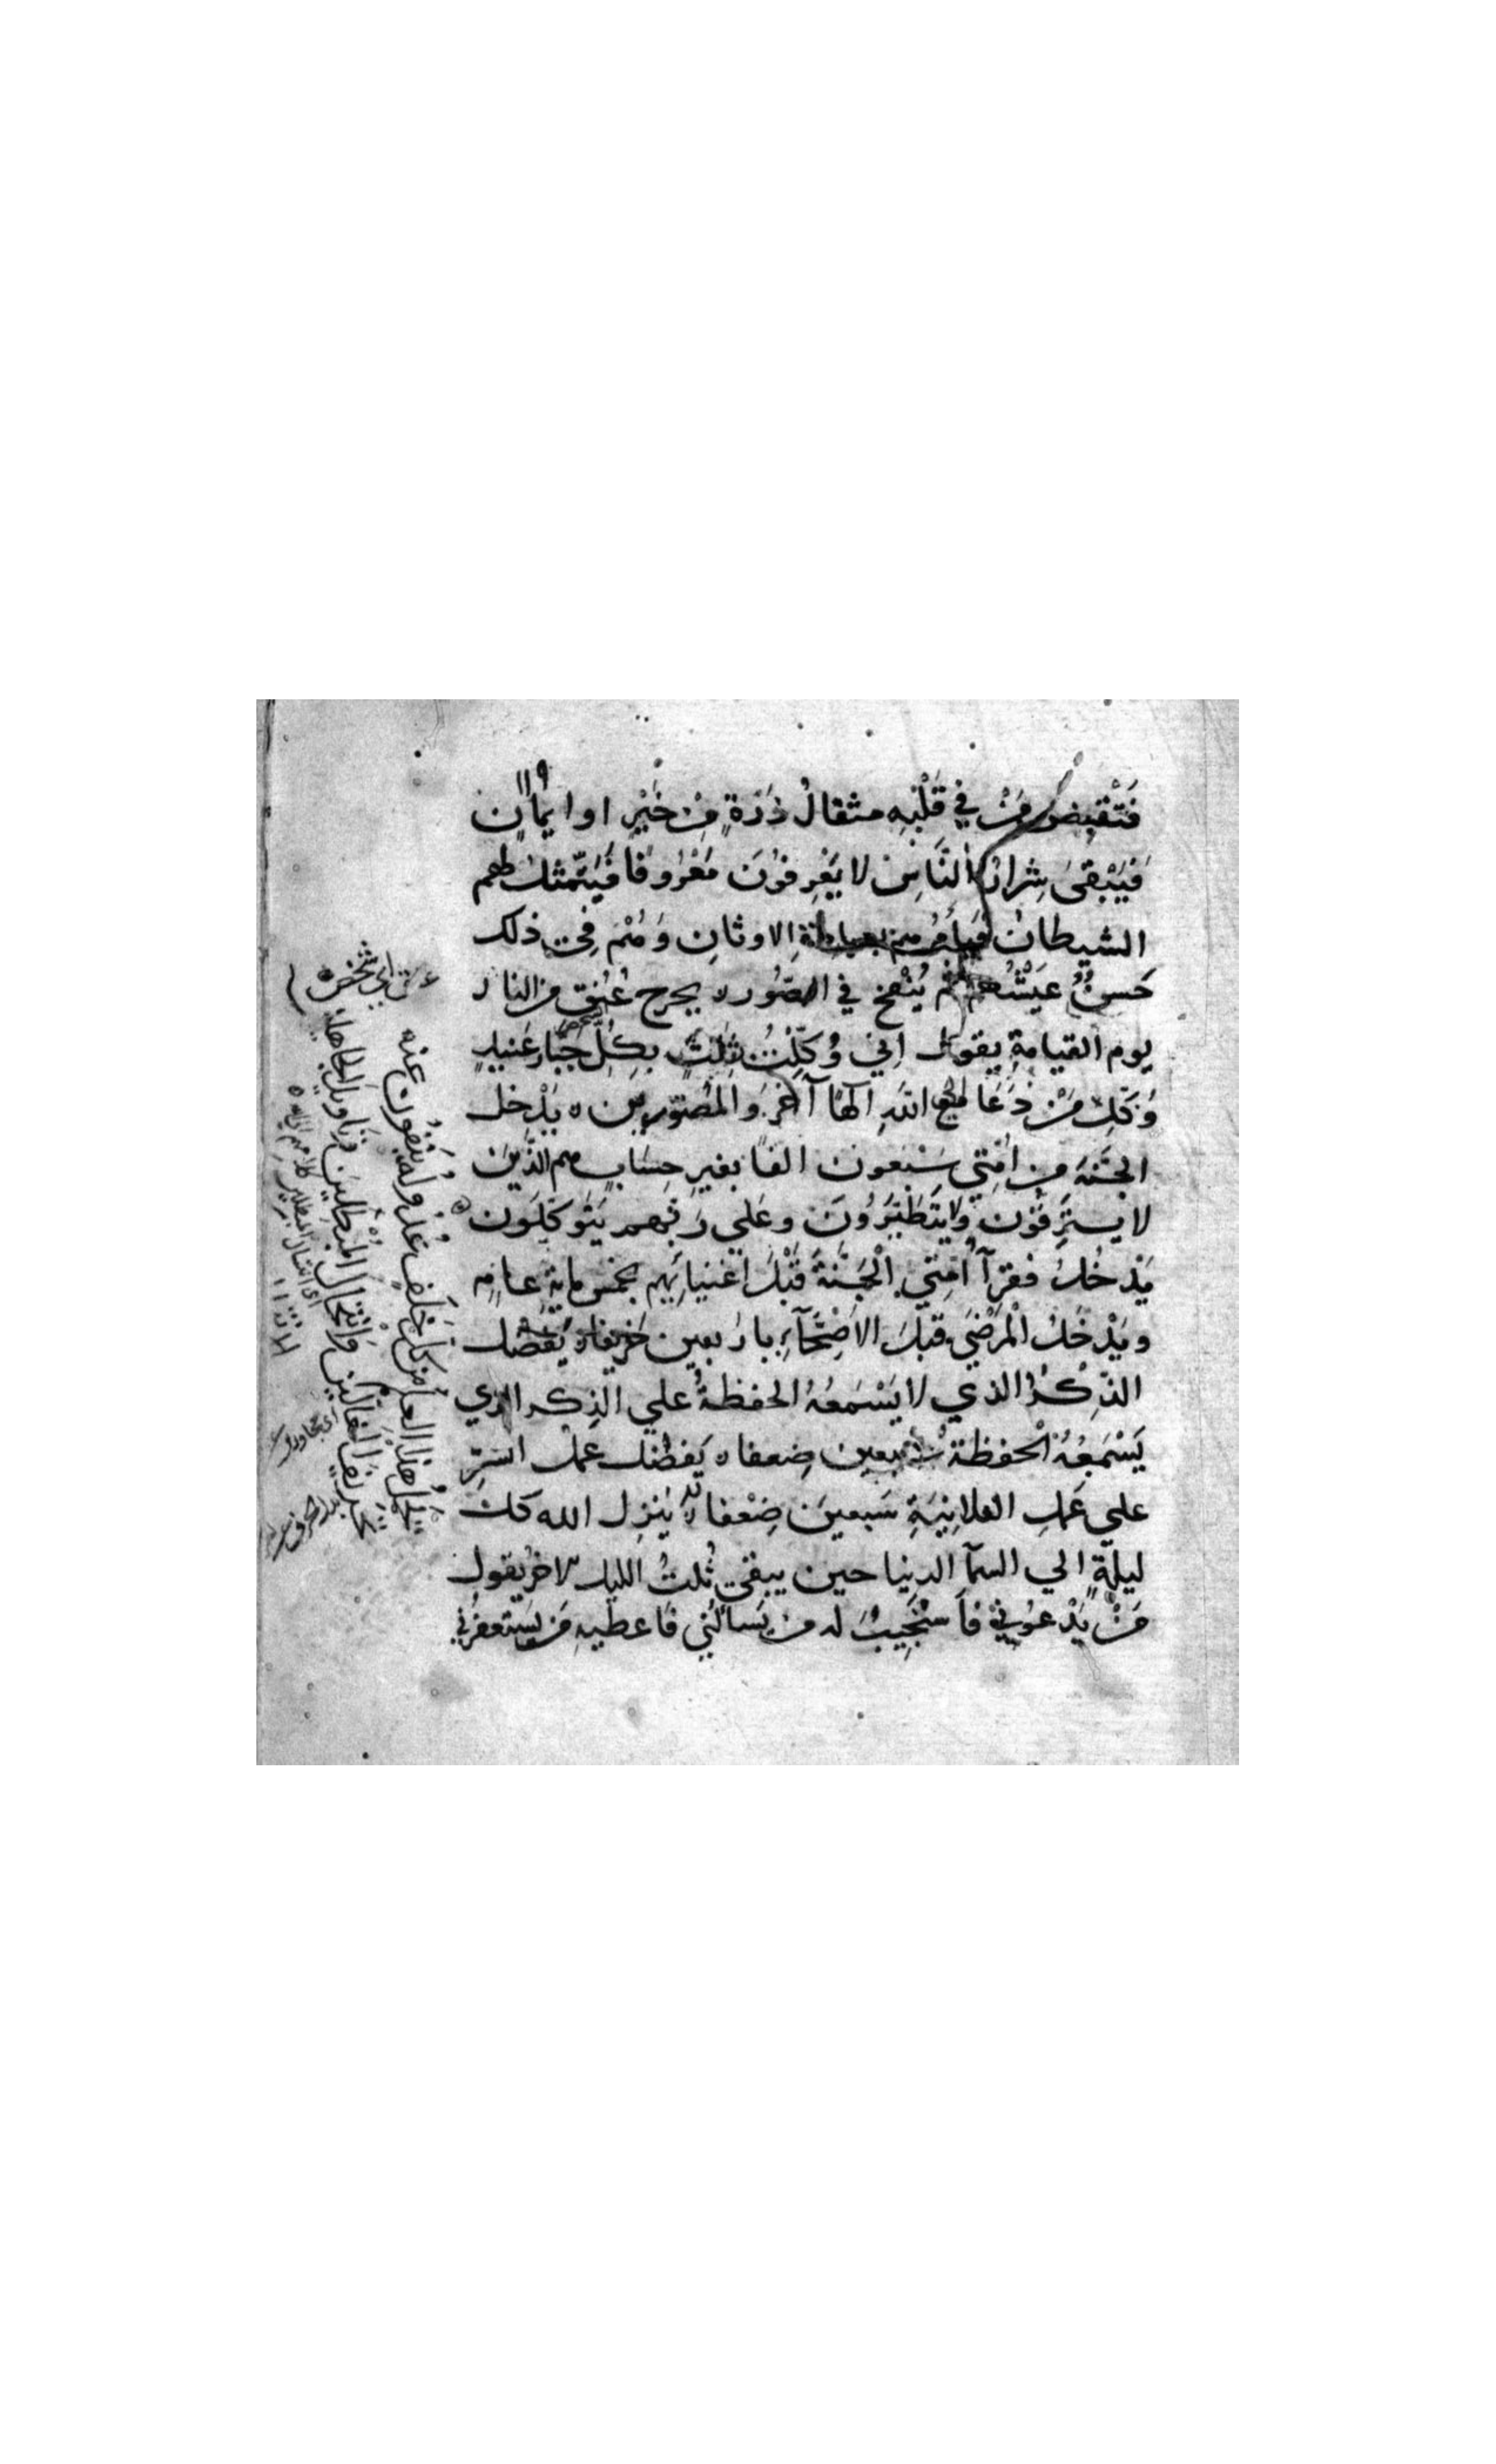 فَتَقْبِضُ مَنْ في قَلْبِهِ مثقالُ ذَرَّةٍ مِنْ خَيْرٍ او ايمانٍ
فَيَبْقىَ شِرَارُ النَّاسِ لا يَعْرِفوُنَ مَعْرُوفًا فَيَتَمثلُ لهم
الشيطانُ فيأمُرُهم بعبادةِ الاوثانِ وَهُمْ فِي ذلك
حَسنٌ عيَشُهُم ثُم يُنْفخ في الصُّور ه يخرج عُنُق من النار
يوم القيامةِ يقول اِني وُكِّلْتُ بِثلثٍ بِكلِّ جَبّار عَنيدٍ
وَكلِّ مَنْ دَعَا مع اللهِ الهًا آخرَ والمُصَوّرِين ه يَدْخل
الجَنّةَ من امُتي سَبْعون الفاً بغيرِ حِسَابٍ هم الذَّين
لا يسترَقوُن ولا يَتَطَيَّرُونَ وعَلى رَبّهم يَتَوكّلَون ه
يَدْخُلُ فقرآ امتي الْجَنّةَ قَبْلَ اغنيائِهم بخمس مايةِ عامٍ ه
ويَدْخلُ الْمرْضَي قبلَ الاَصِحّآءِ باربعين خَريفا ه يفضل
الذِكْرُ الذي لا يَسْمَعُهُ الحفظةُ علي الذِكر الذي
يَسْمَعُهُ الْحفظة سبعين ضِعفا ه يَفضُل عمل السِّرِّ
علي عَملِ العلانِيَةِ سَبعينَ ضِعْفا ه يَنزِل الله كل
ليلةٍ الي السمآ الدنيا حين يبقي ثُلثُ الليل الاخر يقول
مَنْ يَدْعوني فاَسْتَجِيبُ له من يَسألُني فاعطيهِ مَن يستغفرني
يَحْمِلُ هذا العلم من كل خَلَفٍ عُدُوله يَنْفُون عنه
تحريف الغالين وانتحال المُبْطِلين وتأويل الجاهلين